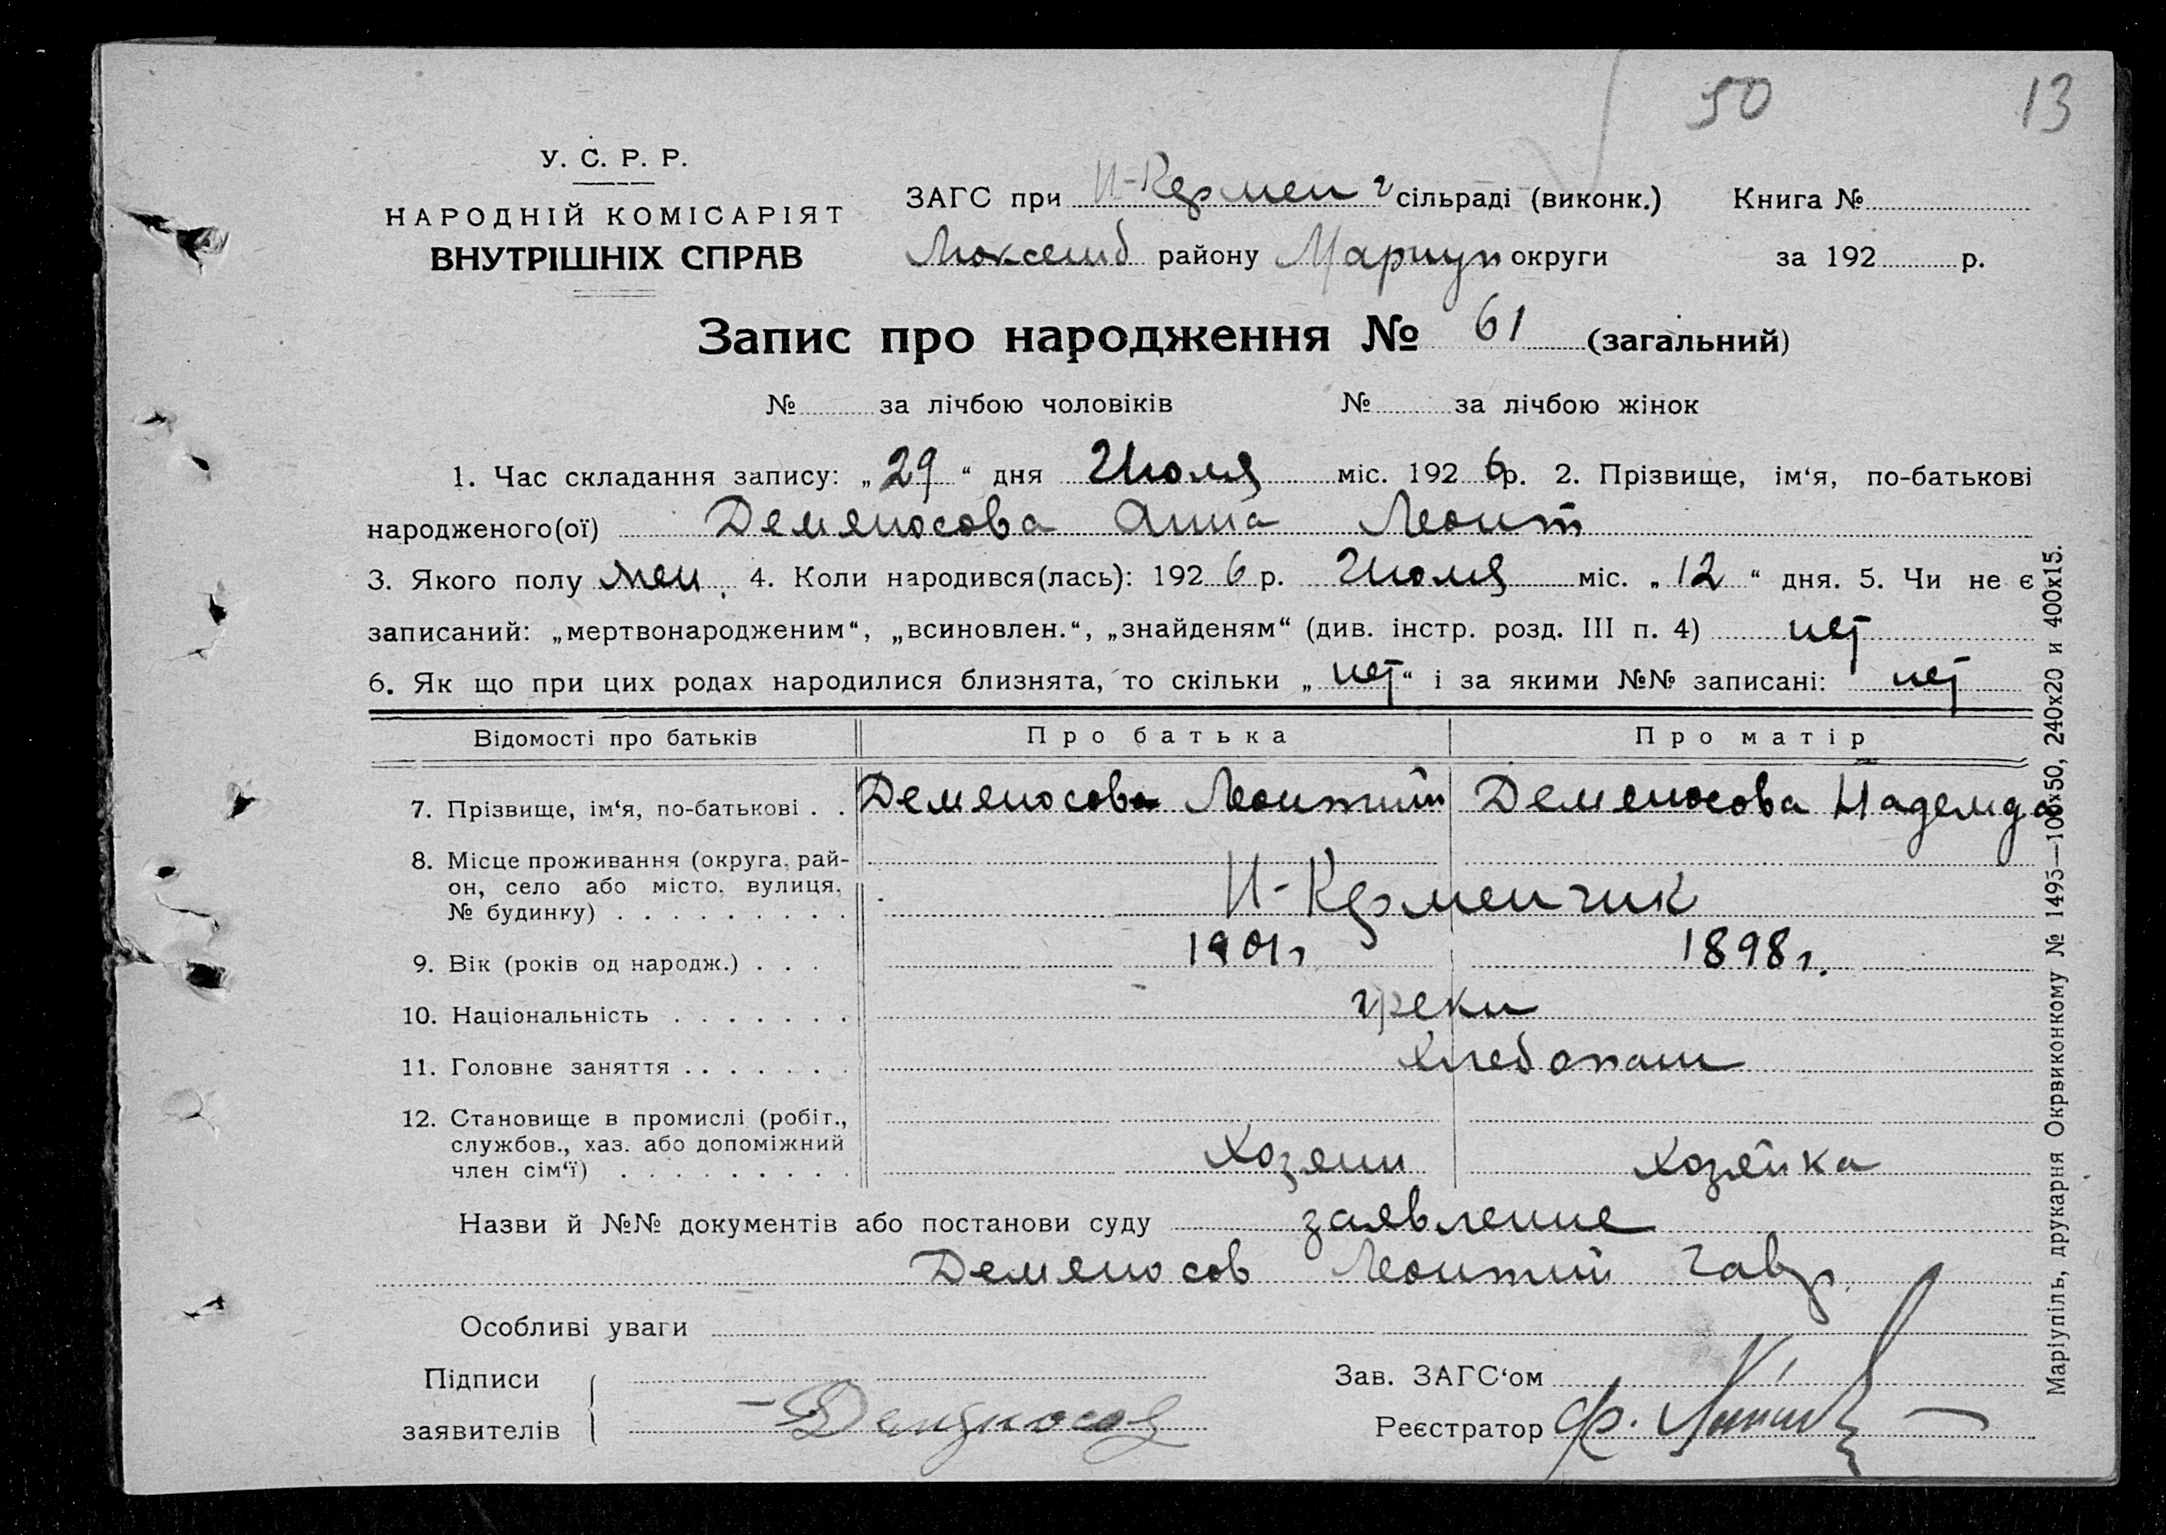 50 13
У. С. Р. Р.
НАРОДНІЙ КОМІСАРІЯТ
ВНУТРІШНІХ СПРАВ
ЗАГС при Н-Кермен г сільраді (виконк.) Книга №
району Мариуп округи за 192 р.
Запис про народження № 61 (загальний)
№ за лічбою чоловіків № за лічбою жінок
1. Час складання запису: „ 29 “ дня Июля міс. 192 6 р. 2. Прізвище, ім‘я, по-батькові
народженого(ої) Демяносова Анна Леонт
3. Якого полу жен. 4. Коли народився(лась): 192 6 р. Июля міс. „ 12 “ дня. 5. Чи не є
записаний: „мертвонародженим“, „всиновлен.“, „знайденям“ (див. інстр. розд. III п. 4) нет
6. Як що при цих родах народилися близнята, то скільки „ нет “ і за якими №№ записані: нет
Відомості про батьків Про батька Про матір
7. Прізвище, ім‘я, по-батькові . . Демяносова Леонтий Демяносова Надежда
8. Місце проживання (округа, рай-
он, село або місто, вулиця,
№ будинку) . . . . . . . . . Н-Керменчик
9. Вік (років од народж.) . . . 1901 г 1898 г.
10. Національність . . . . . . . греки
11. Головне заняття . . . . . . . Хлебопаш
12. Становище в промислі (робіт.,
службов., хаз. або допоміжний
член сім‘ї) . . . . . . . . . Хозяин Хозяйка
Назви й №№ документів або постанови суду заявление
Демяносов Леонтий Гавр.
Особливі уваги
Підписи Зав. ЗАГС‘ом
заявителів Демяносов Реєстратор
Маріупіль, друкарня Окрвиконкому № 1495—100х50, 240х20 и 400х15.